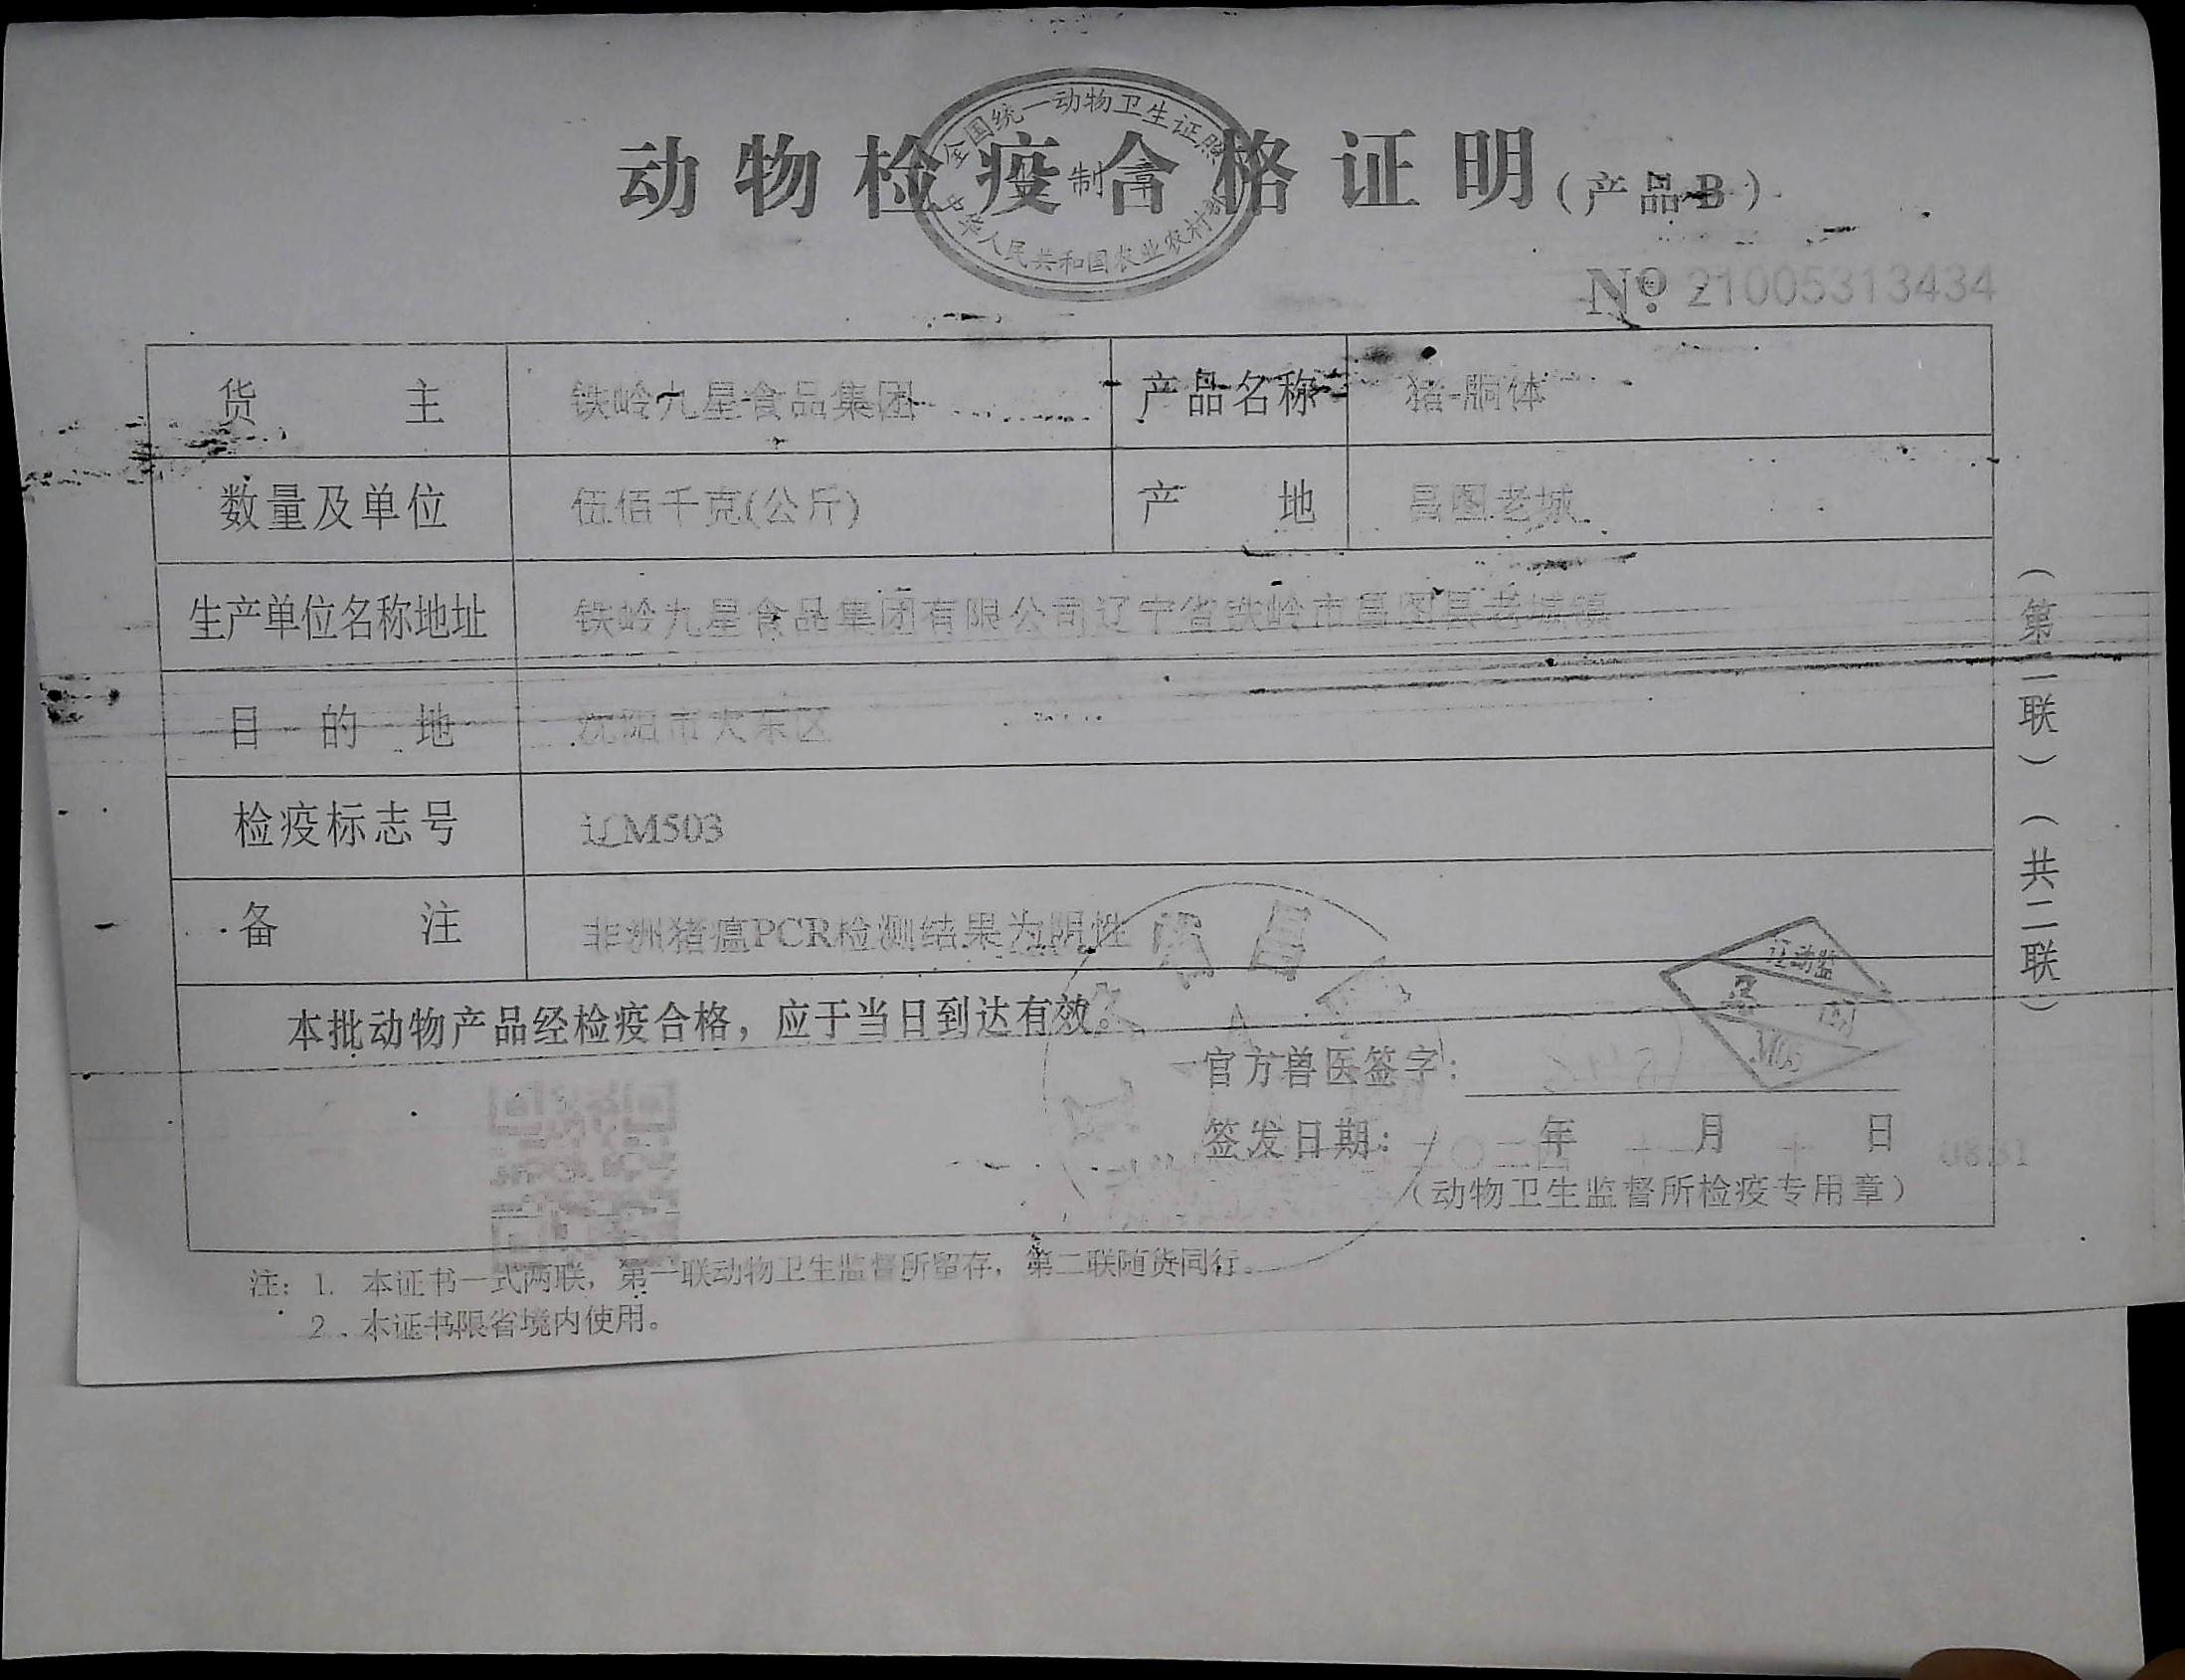 全国统一动物卫生证照
监制章
中华人民共和国农业农村部
动物检疫合格证明(产品B)
№ 21005313434
货主 铁岭九星食品集团 产品名称 猪-胴体
数量及单位 伍佰千克(公斤) 产地 昌图老城
生产单位名称地址 铁岭九星食品集团有限公司辽宁省铁岭市昌图县老城镇
目的地 沈阳市大东区
检疫标志号 辽M503
备注 非洲猪瘟PCR检测结果为阴性
本批动物产品经检疫合格，应于当日到达有效。
辽动监
官方兽医签字：
签发日期： 二〇二四年 十一月 十日
（动物卫生监督所检疫专用章）
注：1. 本证书一式两联，第一联动物卫生监督所留存，第二联随货同行。
2. 本证书限省境内使用。
（第二联）（共二联）